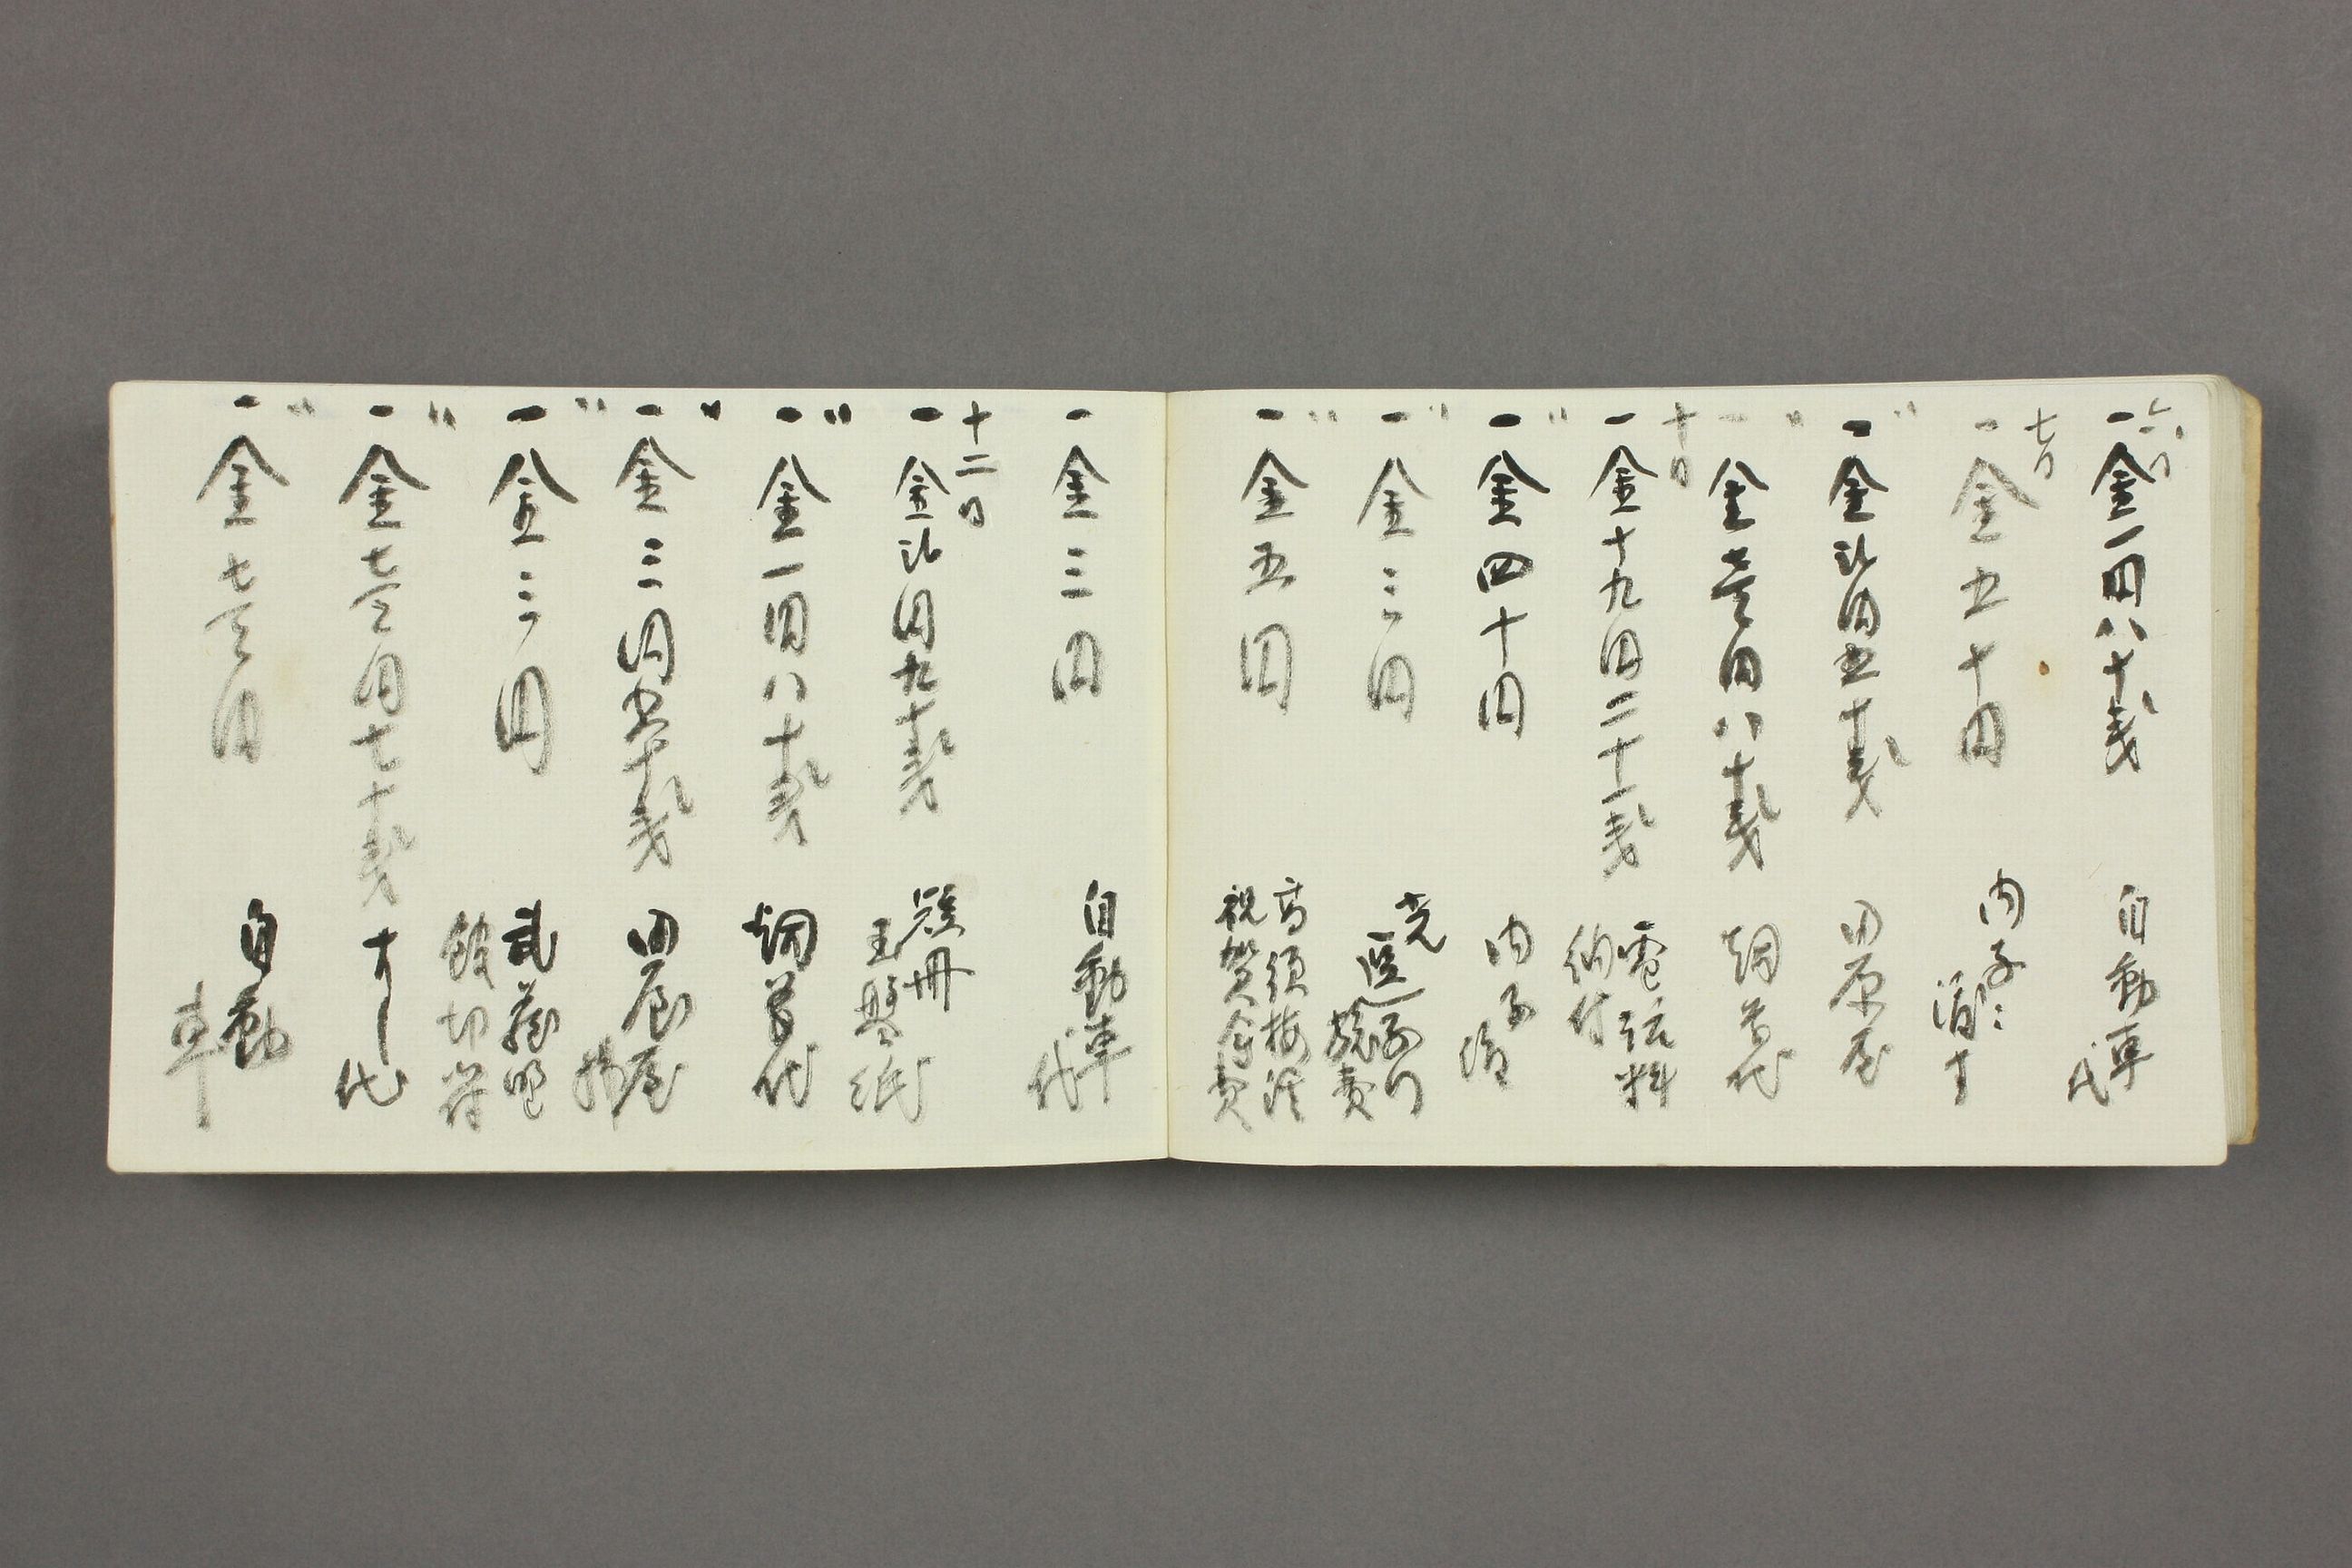 六日
一金一円八十銭 自動車代
七日
一金五十円 内子ニ渡す
〃
一金弐円五十銭 田原屋
〃
一金壱円八十銭 朝善代
十日
一金十九円二十一銭 電話料
納付
〃
一金四十円 内子渡
〃
一金三円 逗子行
旅費
〃
一金五円
祝賀会費
一金三円 自動車代
十二日
一金弐円九十銭 短冊
〃
一金一円八十銭
〃
一金三円五十銭 田原屋
〃
一金三円 武蔵野
館切符
〃
一金七円七十銭 すし代
〃
一金七円 自動車